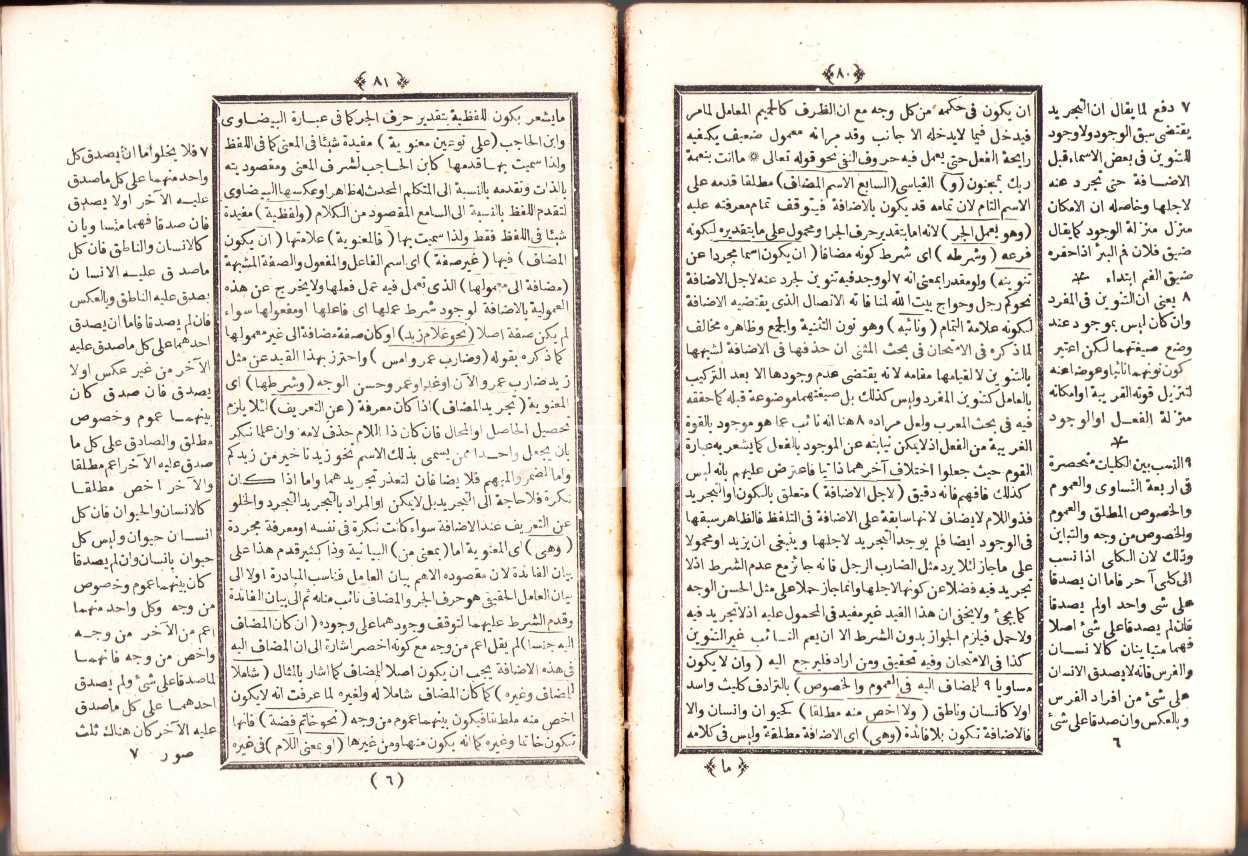 ﴿٨٠﴾
ان يكون فى حكمه من كل وجه مع ان الظرف كالجيم المعامل لما مر
فيدخل فيما لا يدخله الا جانب وقد مر انه معمول ضعيف يكفيه
رايحة الفعل حتى يعمل فيه حروف النفى نحو قوله تعالى * ما انت بنعمة
ربك بمجنون (و) القياسى (السابع الاسم المضاف) مطلقا قدمه على
الاسم التام لان تمامه قد يكون بالاضافة فيتوقف تمام معرفته عليه
(وهو يعمل الجر) لانه اما بتقدير حرف الجر او محمول على ما بتقديره لكونه
فرعه (وشرطه) اى شرط كونه مضافا (ان يكون اسما مجردا عن
تنوينه) ولو مقدرا بمعنى انه ٧ لو وجد فيه تنوين جرد عنه لاجل الاضافة
نحو كم رجل وحواج بيت الله لمنافاته الاتصال الذى يقتضيه الاضافة
لكونه علامة التمام (ونائبه) وهو نون التثنية والجمع وظاهره مخالف
لما ذكره فى الامتحان فى بحث المثنى ان حذفها فى الاضافة لشبهها
بالتنوين لا لقيامها مقامه لانه يقتضى عدم وجودها الا بعد التركيب
بالعامل كتنوين المفرد وليس كذلك بل صيغتهما موضوعة قبله كما حققه
فيه فى بحث المعرب ولعل مراده ٨ هنا انه نائب عما هو موجود بالقوة
القريبة من الفعل اذ لا يمكن نيابته عن الموجود بالفعل كما يشعر به عبارة
القوم حيث جعلوا اختلاف آخرهما ذاتيا فاعترض عليهم بانه ليس
كذلك فافهم فانه دقيق (لاجل الاضافة) متعلق بالكون او التجريد
فذو اللام لا يضاف لانها سابقة على الاضافة فى التلفظ فالظاهر سبقها
فى الوجود ايضا فلم يوجد التجريد لاجلها وينبغى ان يزيد او محمولا
على ما جاز لئلا يرد مثل الضارب الرجل فانه جائز مع عدم الشرط اذ لا
تجريد فيه فضلا عن كونها لاجلها وانما جاز حملا على مثل الحسن الوجه
كما يجئ ولا يخفى ان هذا القيد غير مفيد فى المحمول عليه اذ لا تجريد فيه
ولاجل فيلزم الجواز بدون الشرط الا ان يعم النائب غير التنوين
كذا فى الامتحان وفيه تحقيق ومن اراد فليرجع اليه (وان لا يكون
مساويا ٩ للمضاف اليه فى العموم والخصوص) بالترادف كليث واسد
اولا كانسان وناطق (ولا اخص منه مطلقا) كحيوان وانسان والا
فالاضافة تكون بلا فائدة (وهى) اى الاضافة مطلقة وليس فى كلامه
﴿ما﴾
٧ دفع لما يقال ان التجريد
يقتضى سبق الوجود ولا وجود
للتنوين فى بعض الاسماء قبل
الاضافة حتى تجرد عنه
لاجلها وحاصله ان الامكان
منزل منزلة الوجود كما يقال
ضيق فلان فم البئر اذا حفره
ضيق الفم ابتداء
٨ يعنى ان التنوين فى المفرد
وان كان ليس بموجود عند
وضع صيغتهما لكن اعتبر
كون نونهما نائبا وعوضا عنه
لتنزيل قوته القريبة او امكانه
منزلة الفعل او الوجود
٩ النسب بين الكليات منحصرة
فى اربعة التساوى والعموم
والخصوص المطلق والعموم
والخصوص من وجه والتباين
وذلك لان الكلى اذا نسب
الى كلى آخر فاما ان يصدقا
على شئ واحد اولم يصدقا
فان لم يصدقا على شئ اصلا
فهما متباينان كالانسان
والفرس فانه لا يصدق الانسان
على شئ من افراد الفرس
وبالعكس وان صدقا على شئ
٦
﴿٨١﴾
ما يشعر بكون اللفظية بتقدير حرف الجر كما فى عبارة البيضاوى
وابن الحاجب (على نوعين معنوية) مفيدة شيئا فى المعنى كما فى اللفظ
ولذا سميت بها قدمها كابن الحاجب لشرف المعنى ومقصوديته
بالذات وتقدمه بالنسبة الى المتكلم المحدث له ظاهرا وعكسها البيضاوى
لتقدم اللفظ بالنسبة الى السامع المقصود من الكلام (ولفظية) مفيدة
شيئا فى اللفظ فقط ولذا سميت بها (فالمعنوية) علامتها (ان يكون
المضاف) فيها (غير صفة) اى اسم الفاعل والمفعول والصفة المشبهة
(مضافة الى معمولها) الذى تعمل فيه عمل فعلها ولا يخرج عن هذه
المعمولية بالاضافة لوجود شرط عملها اى فاعلها او مفعولها سواء
لم يكن صفة اصلا (نحو غلام زيد) او كان صفة مضافة الى غير معمولها
كما ذكره بقوله (وضارب عمرو امس) واحترز بهذا القيد عن مثل
زيد ضارب عمرو الآن او غدا وعمر وحسن الوجه (وشرطها) اى
المعنوية (تجريد المضاف) اذا كان معرفة (عن التعريف) لئلا يلزم
تحصيل الحاصل او المحال فان كان ذا اللام حذف لامه وان علما نكر
بان يجعل واحدا ممن يسمى بذلك الاسم نحو زيدنا خير من زيدكم
واما المضمر والمبهم فلا يضافان لتعذر تجريدهما واما اذا كان
نكرة فلا حاجة الى التجريد بل لا يمكن او المراد بالتجريد التجرد والخلو
عن التعريف عند الاضافة سواء كانت نكرة فى نفسه او معرفة مجردة
(وهى) اى المعنوية اما (بمعنى من) البيانية وذا كثير قدم هذا على
بيان الفائدة لان مقصوده الاهم بيان العامل فناسب المبادرة اولا الى
بيان العامل الحقيقى هو حرف الجر والمضاف نائب منابه ثم الى بيان الفائدة
وقدم الشرط عليهما لتوقف وجودهما على وجوده (ان كان المضاف
اليه جنسا) لم يقل اعم من وجه مع كونه اخصر اشارة الى ان المضاف اليه
فى هذه الاضافة يجب ان يكون اصلا للمضاف كما اشار بالمثال (شاملا
للمضاف وغيره) كما كان المضاف شاملا له ولغيره لما عرفت انه لا يكون
اخص منه مطلقا فيكون بينهما عموم من وجه (نحو خاتم فضة) فانها
تكون خاتما وغيره كما انه يكون منها ومن غيرها (او بمعنى اللام) فى غيره
(٦)
٧ فلا يخلو اما ان يصدق كل
واحد منهما على كل ما صدق
عليه الآخر اولا يصدق
فان صدقا فهما متساويان
كالانسان والناطق فان كل
ما صدق عليه الانسان
يصدق عليه الناطق وبالعكس
فان لم يصدقا فاما ان يصدق
احدهما على كل ما صدق عليه
الآخر من غير عكس اولا
يصدق فان صدق كان
بينهما عموم وخصوص
مطلق والصادق على كل ما
صدق عليه الآخر اعم مطلقا
والآخر اخص مطلقا
كالانسان والحيوان فان كل
انسان حيوان وليس كل
حيوان بانسان وان لم يصدقا
كان بينهما عموم وخصوص
من وجه وكل واحد منهما
اعم من الآخر من وجه
واخص من وجه فانهما
لما صدقا على شئ ولم يصدق
احدهما على كل ما صدق
عليه الآخر كان هناك ثلث
صور ٧